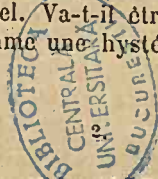 el. Va-t-il êtr
me une hysté
BIBLIOTECA
CENTRALĂ
UNIVERSITARĂ
BUCUREȘTI